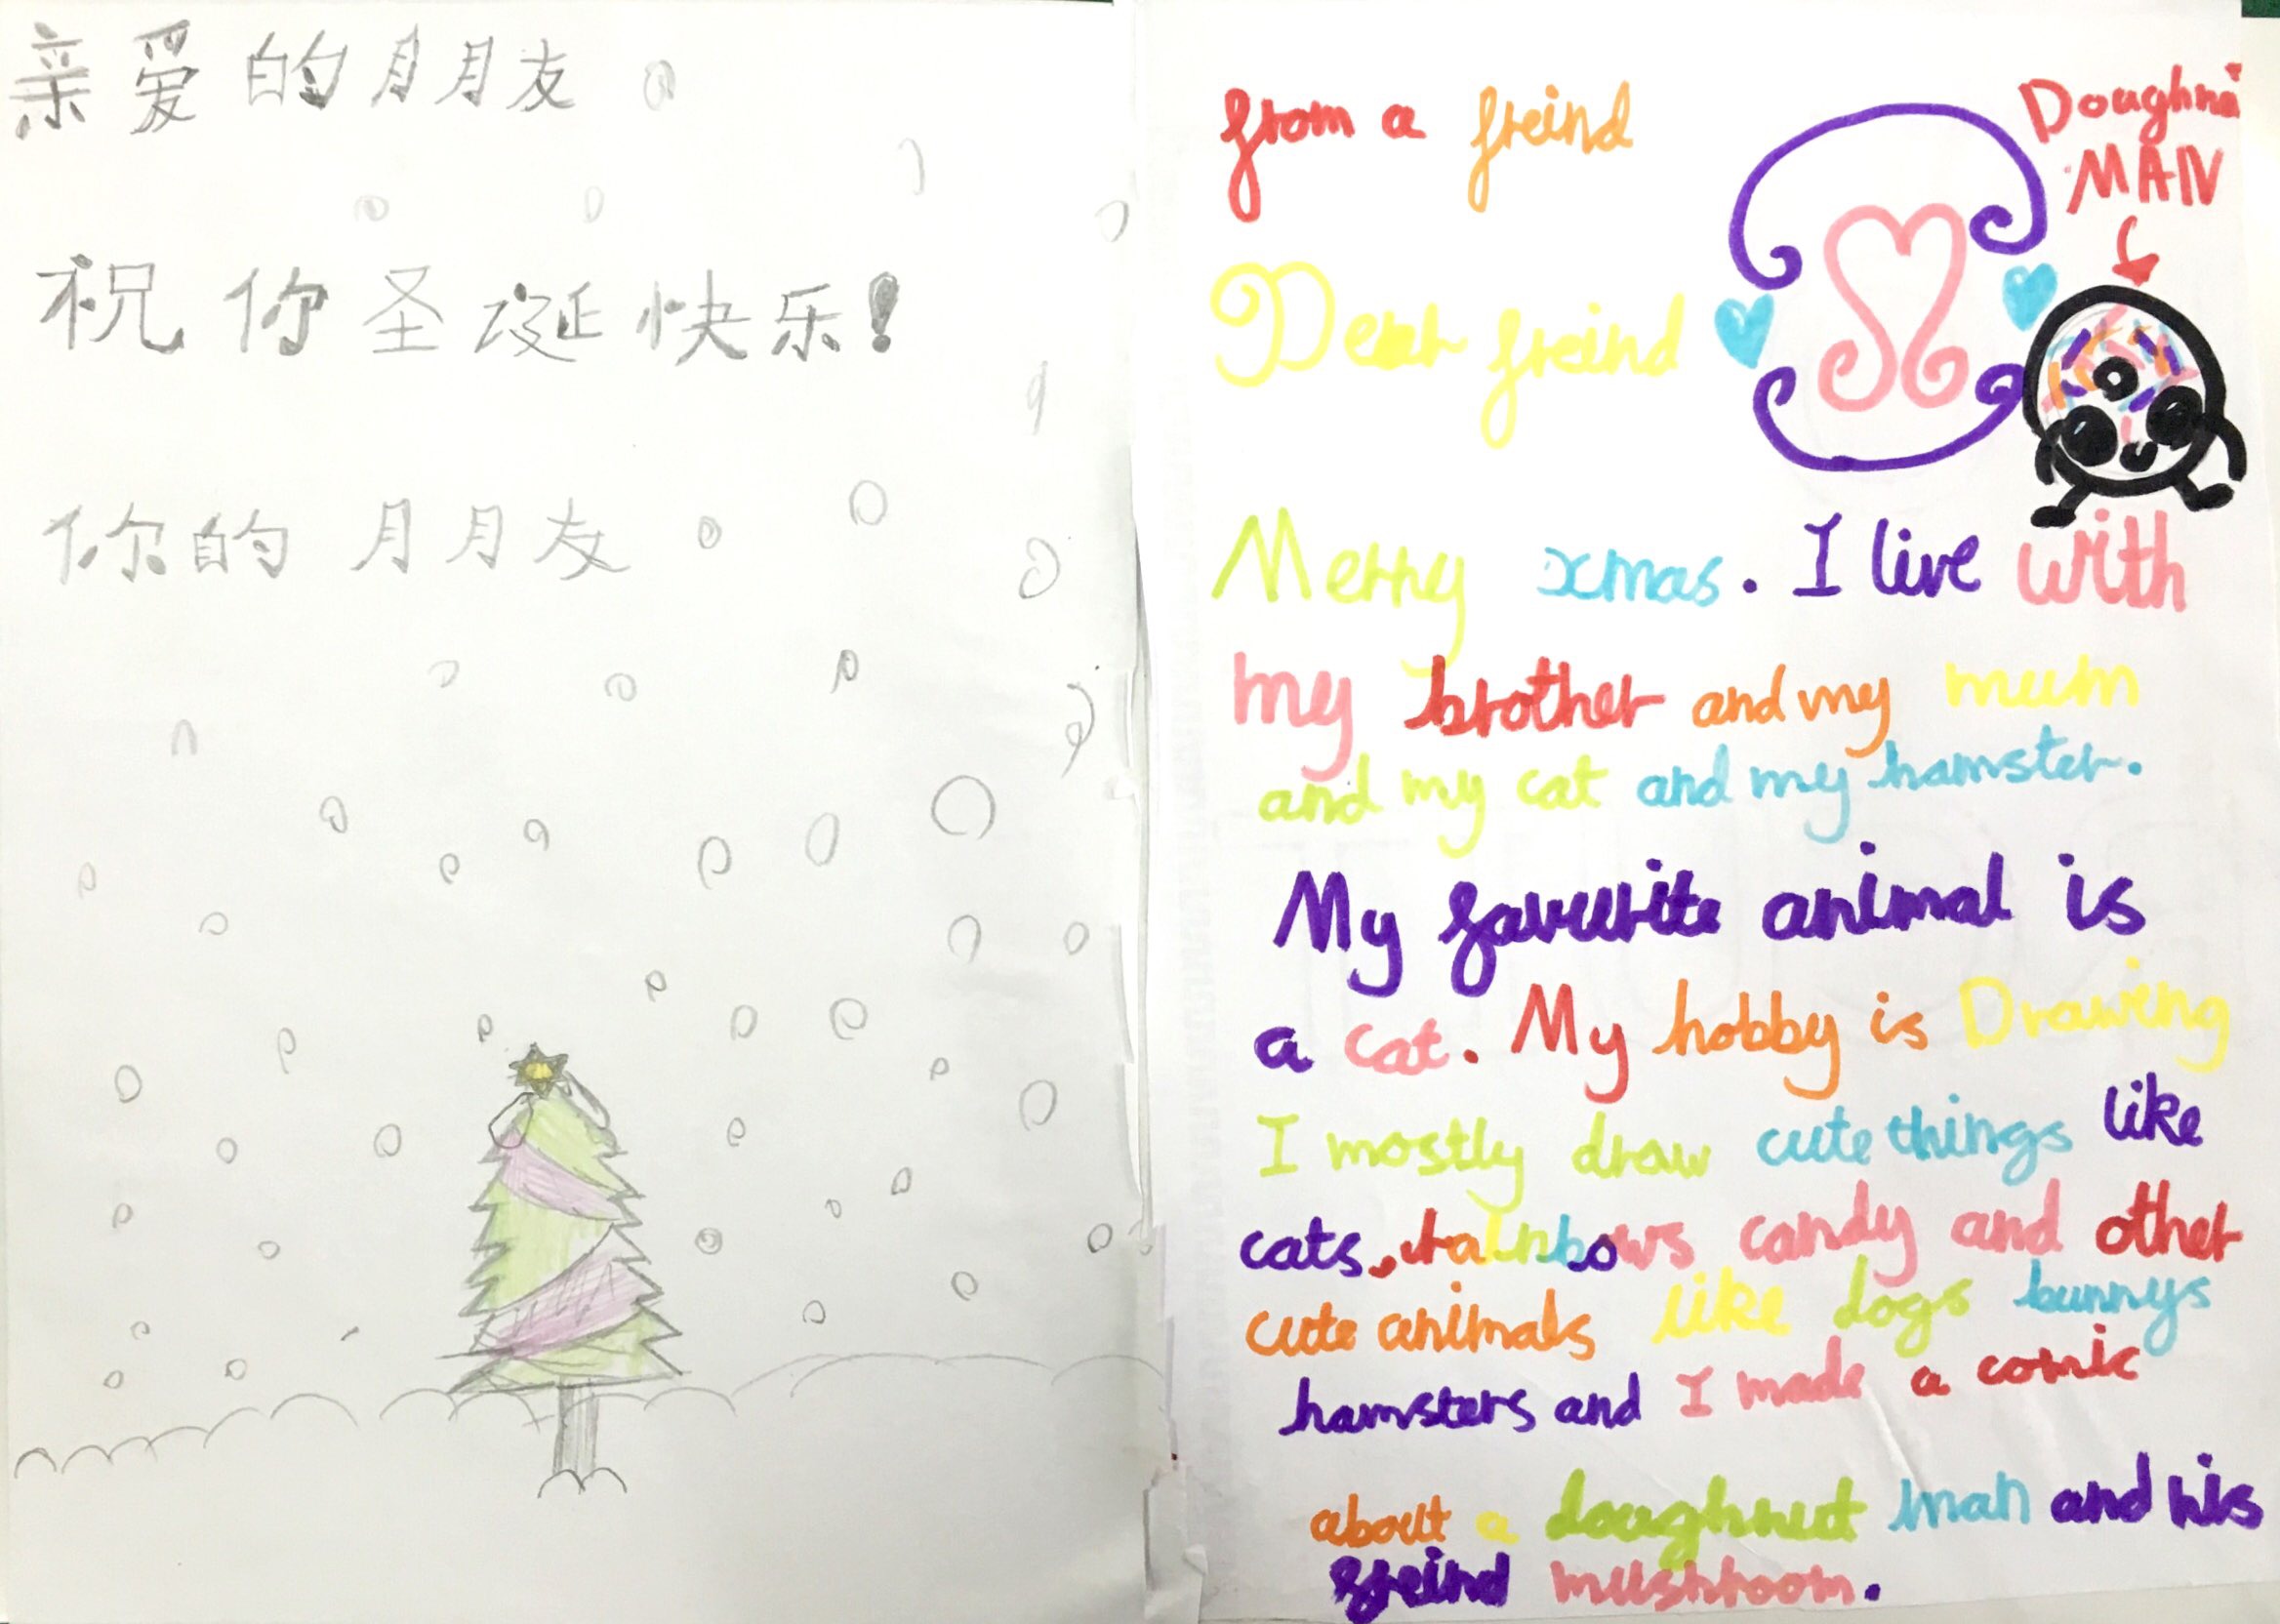 亲爱的朋友
祝你圣诞快乐!
你的朋友
from a freind
Doughnut
MAN
Dear freind
Merry xmas. I live with
my brother and my mum
and my cat and my hamster.
My favurite animal is
a cat. My hobby is Drawing
I mostly draw cute things like
cats, rainbows candy and other
cute animals like dogs bunnys
hamsters and I made a comic
about a doughnut man and his
freind mushroom.